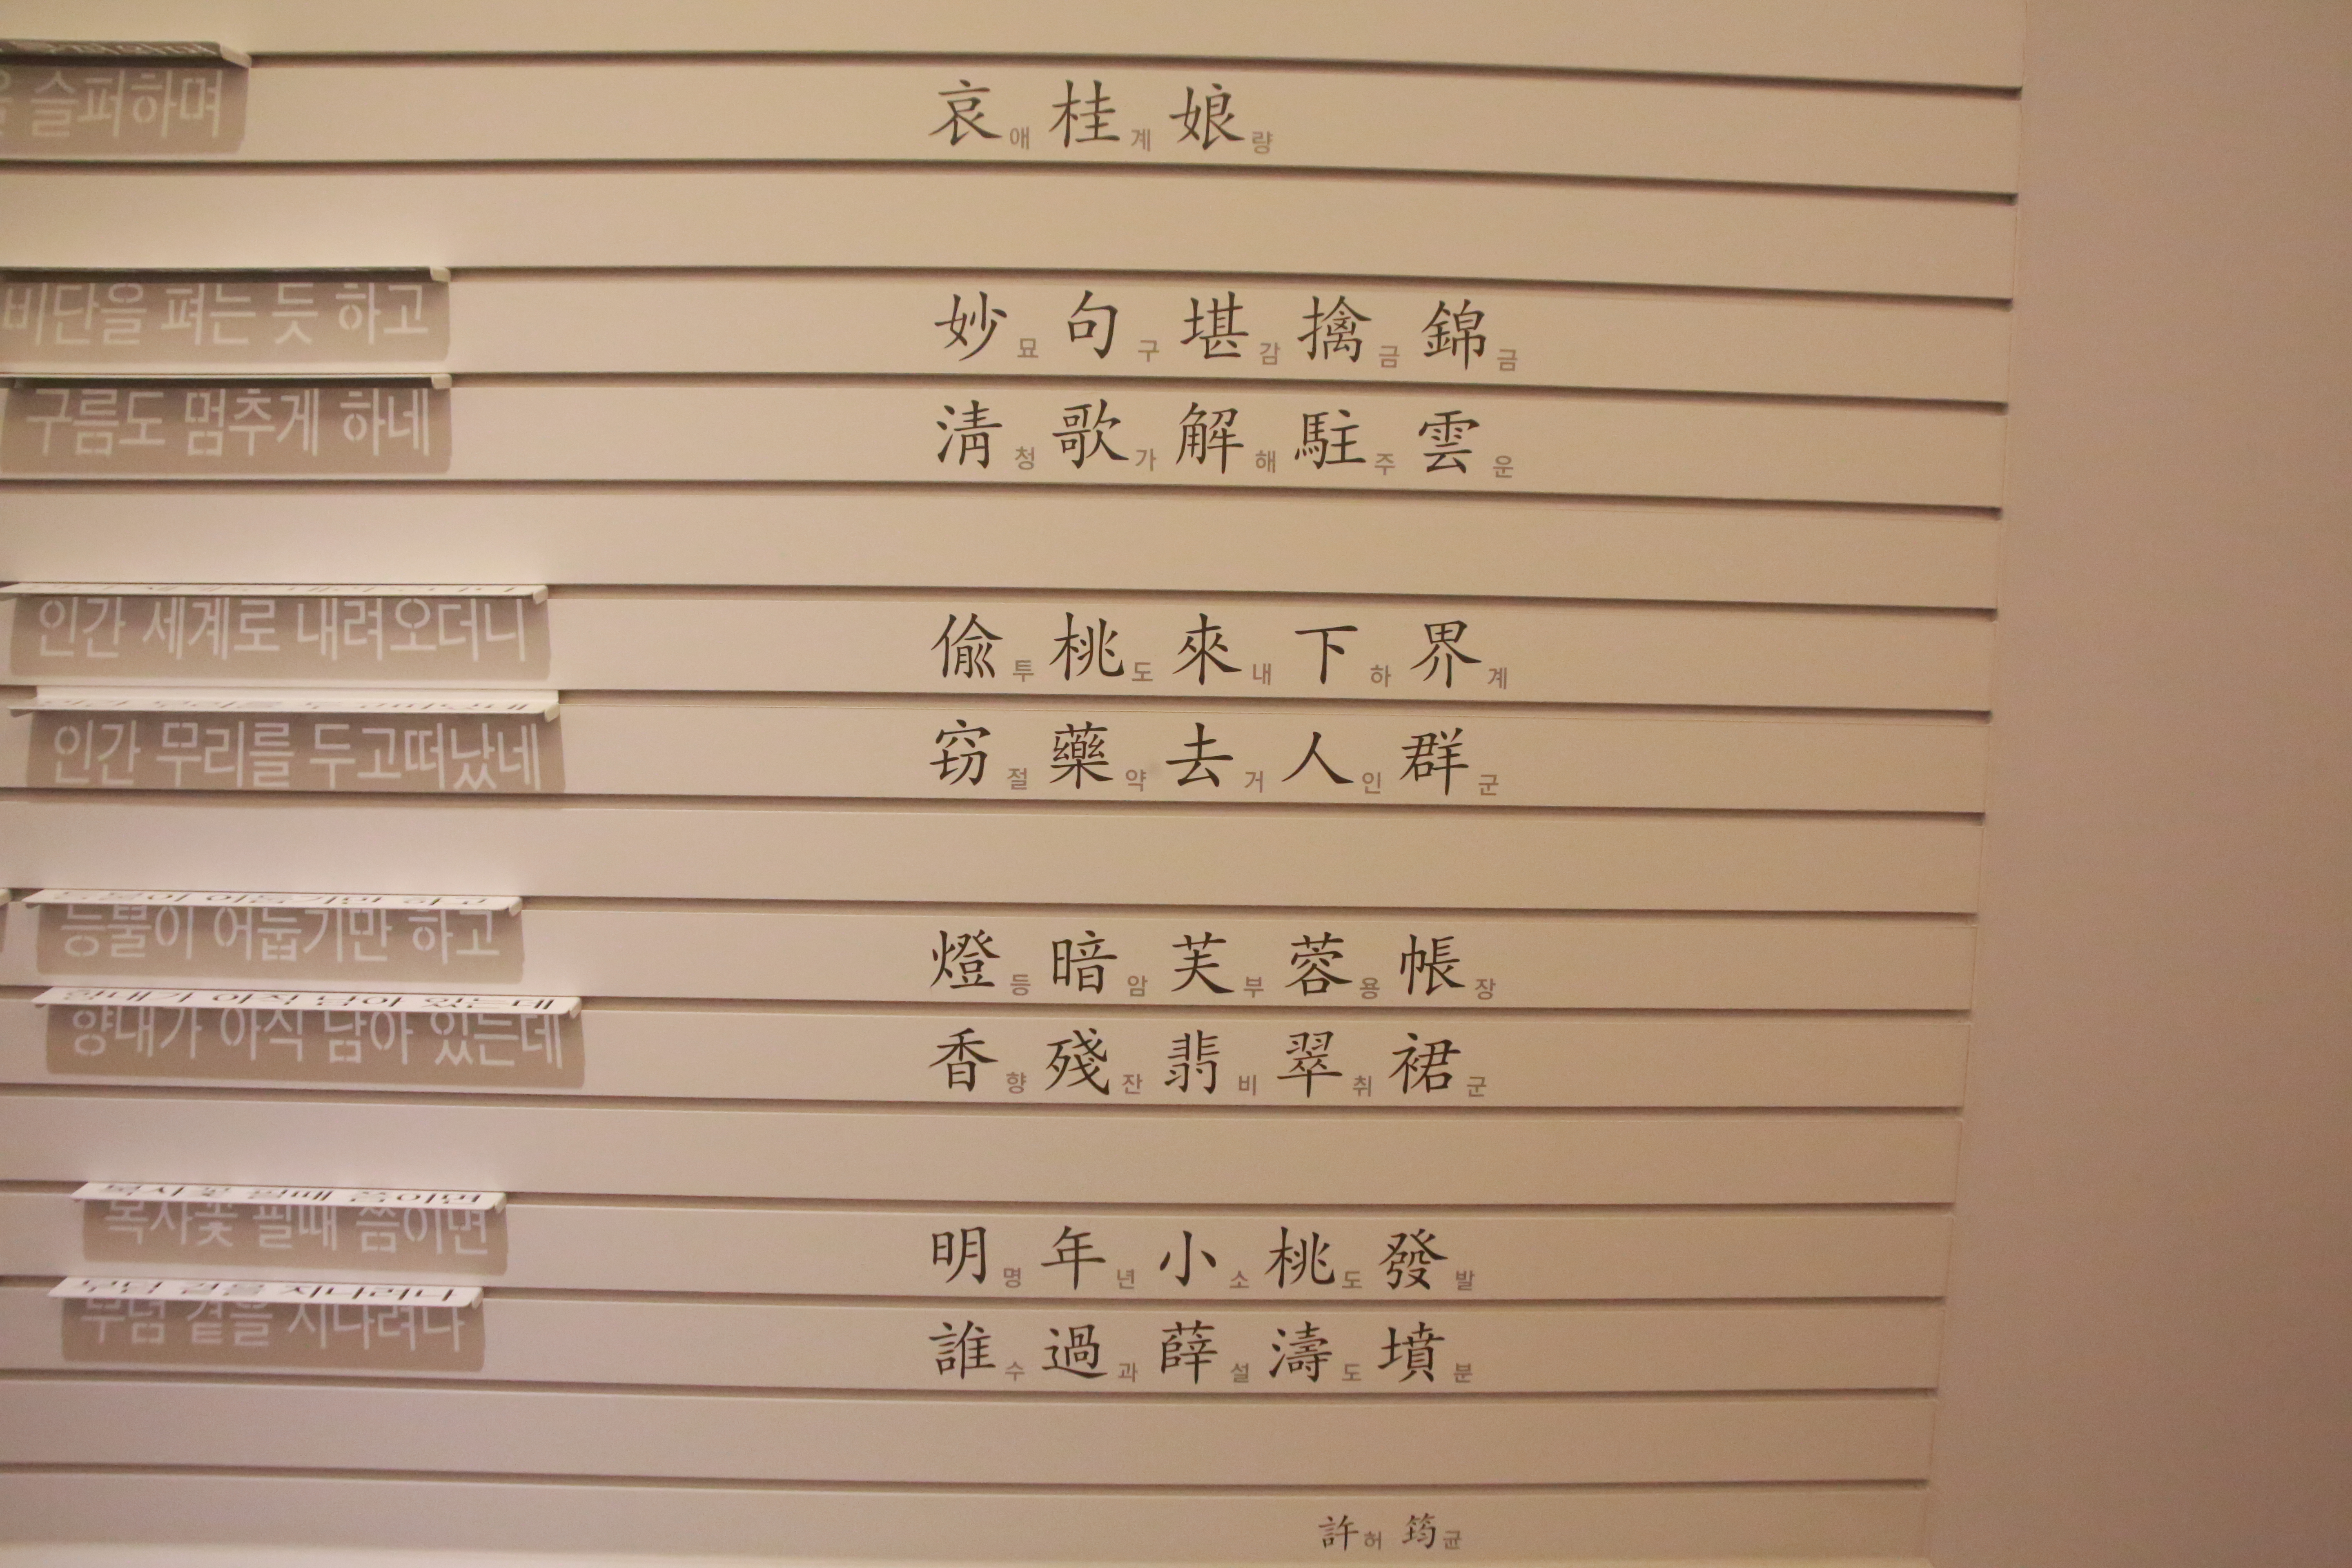 슬퍼하며
哀애 桂계 娘량
비단을 펴는 듯 하고
妙묘 句구 堪감 擒금 錦금
구름도 멈추게 하네
淸청 歌가 解해 駐주 雲운
인간 세계로 내려오더니
偸투 桃도 來내 下하 界계
인간 무리를 두고떠났네
窃절 藥약 去거 人인 群군
등불이 어둡기만 하고
燈등 暗암 芙부 蓉용 帳장
향내가 아직 남아 있는데
香향 殘잔 翡비 翠취 裙군
복사꽃 필때 쯤이면
明명 年년 小소 桃도 發발
무덤 곁을 지나려나
誰수 過과 薛설 濤도 墳분
許허 筠균